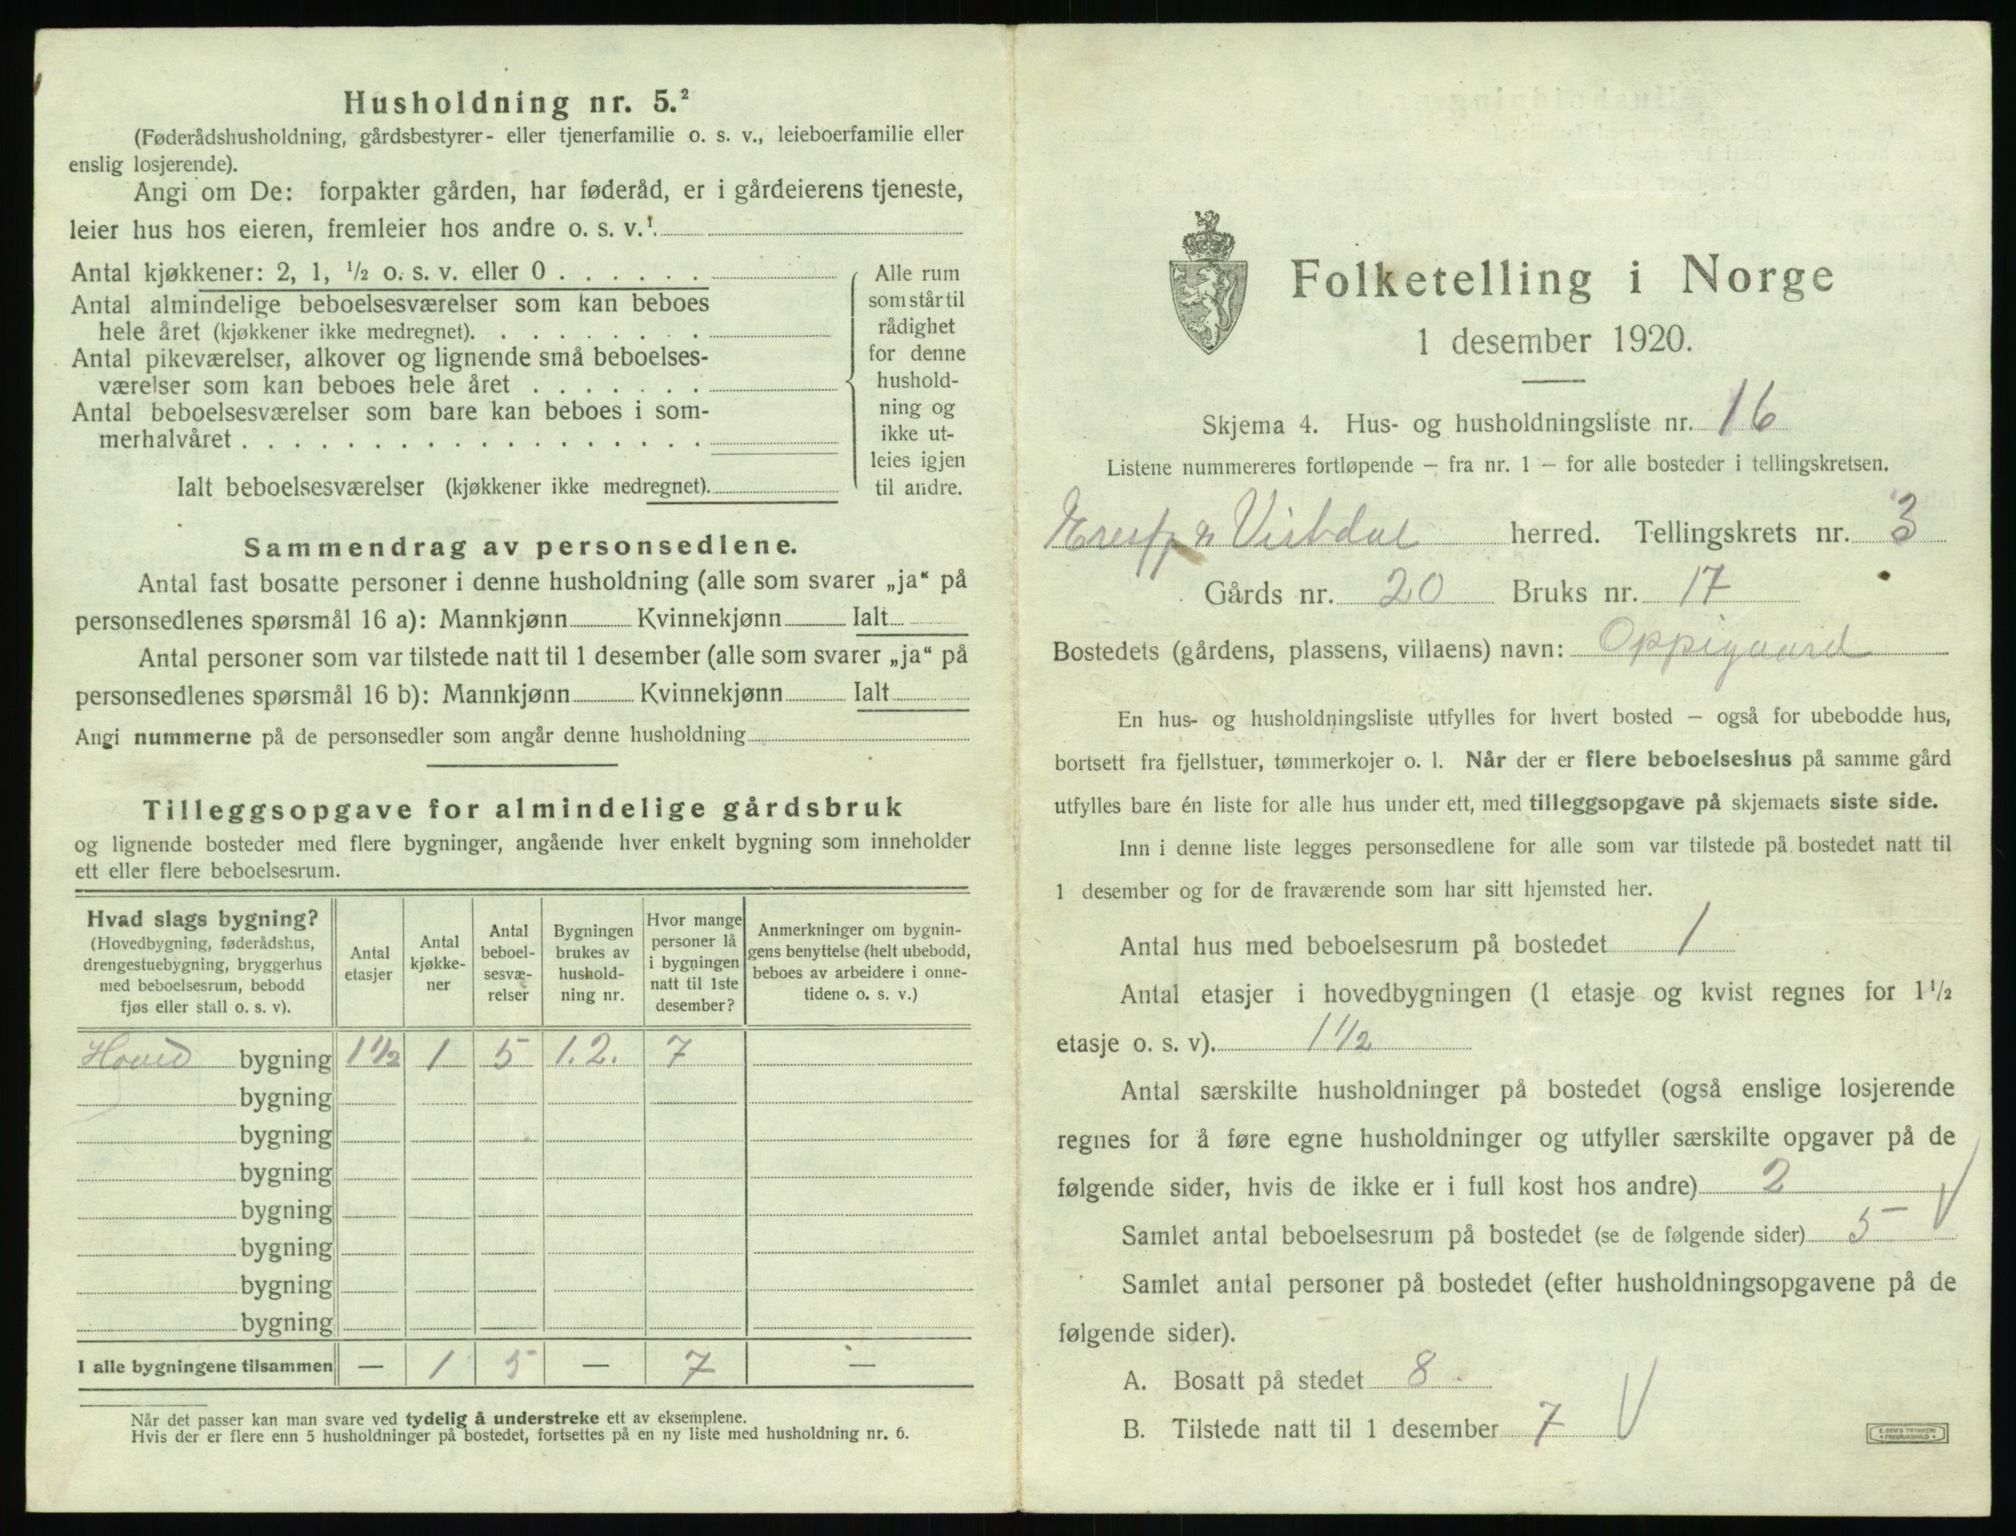 Husholdning nr. 5.²
(Føderådshusholdning, gårdsbestyrer- eller tjenerfamilie o. s. v., leieboerfamilie eller
enslig losjerende).
Angi om De: forpakter gården, har føderåd, er i gårdeierens tjeneste,
leier hus hos eieren, fremleier hos andre o. s. v.¹
Antal kjøkkener: 2, 1, ½ o. s. v. eller 0
Antal almindelige beboelsesværelser som kan beboes
hele året (kjøkkener ikke medregnet).
Antal pikeværelser, alkover og lignende små beboelses-
værelser som kan beboes hele året
Antal beboelsesværelser som bare kan beboes i som-
merhalvåret
Ialt beboelsesværelser (kjøkkener ikke medregnet).
Alle rum
som står til
rådighet
for denne
hushold-
ning og
ikke ut-
leies igjen
til andre.
Sammendrag av personsedlene.
Antal fast bosatte personer i denne husholdning (alle som svarer „ja“ på
personsedlenes spørsmål 16 a): Mannkjønn Kvinnekjønn Ialt
Antal personer som var tilstede natt til 1 desember (alle som svarer „ja“ på
personsedlenes spørsmål 16 b): Mannkjønn Kvinnekjønn Ialt
Angi nummerne på de personsedler som angår denne husholdning
Tilleggsopgave for almindelige gårdsbruk
og lignende bosteder med flere bygninger, angående hver enkelt bygning som inneholder
ett eller flere beboelsesrum.
Hvad slags bygning?
(Hovedbygning, føderådshus,
drengestuebygning, bryggerhus
med beboelsesrum, bebodd
fjøs eller stall o. s. v).
Antal
etasjer
Antal
kjøkke-
ner
Antal
beboel-
sesvæ-
relser
Bygningen
brukes av
hushold-
ning nr.
Hvor mange
personer lå
i bygningen
natt til 1ste
desember?
Anmerkninger om bygnin-
gens benyttelse (helt ubebodd,
beboes av arbeidere i onne-
tidene o. s. v.)
Hoved bygning 1½ 1 5 1.2. 7
bygning
bygning
bygning
bygning
bygning
bygning
bygning
I alle bygningene tilsammen — 1 5 — 7 —
Når det passer kan man svare ved tydelig å understreke ett av eksemplene.
Hvis der er flere enn 5 husholdninger på bostedet, fortsettes på en ny liste med husholdning nr. 6.
Folketelling i Norge
1 desember 1920.
Skjema 4. Hus- og husholdningsliste nr. 16
Listene nummereres fortløpende – fra nr. 1 – for alle bosteder i tellingskretsen.
Eresfj. & Vistdal herred. Tellingskrets nr. 3
Gårds nr. 20 Bruks nr. 17
Bostedets (gårdens, plassens, villaens) navn: Oppigaard
En hus- og husholdningsliste utfylles for hvert bosted – også for ubebodde hus,
bortsett fra fjellstuer, tømmerkojer o. l. Når der er flere beboelseshus på samme gård
utfylles bare én liste for alle hus under ett, med tilleggsopgave på skjemaets siste side.
Inn i denne liste legges personsedlene for alle som var tilstede på bostedet natt til
1 desember og for de fraværende som har sitt hjemsted her.
Antal hus med beboelsesrum på bostedet 1
Antal etasjer i hovedbygningen (1 etasje og kvist regnes for 1½
etasje o. s. v). 1½
Antal særskilte husholdninger på bostedet (også enslige losjerende
regnes for å føre egne husholdninger og utfyller særskilte opgaver på de
følgende sider, hvis de ikke er i full kost hos andre) 2
Samlet antal beboelsesrum på bostedet (se de følgende sider) 5
Samlet antal personer på bostedet (efter husholdningsopgavene på de
følgende sider).
A. Bosatt på stedet 8
B. Tilstede natt til 1 desember 7
E. SEM'S TRYKKERI
FREDRIKSHALD